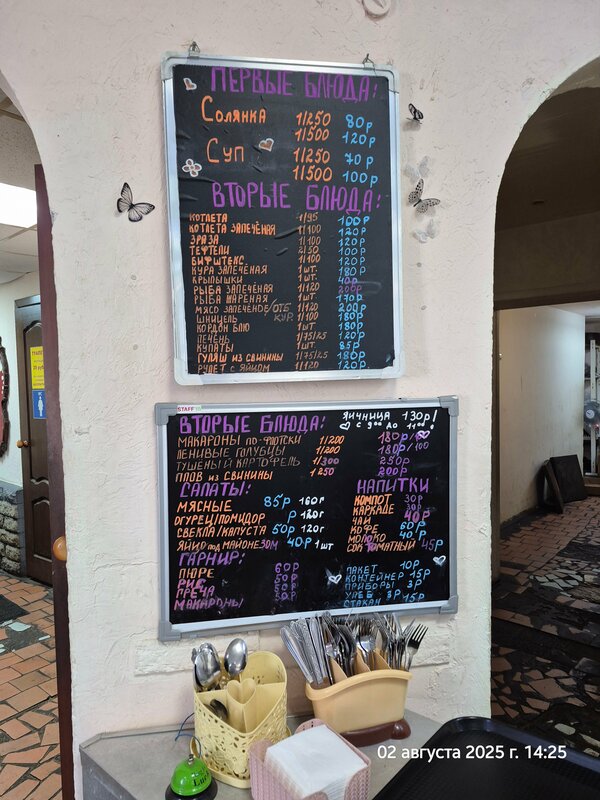 ПЕРВЫЕ БЛЮДА:
Солянка 1/250 80р
1/500 120р
Суп 1/250 70р
1/500 100р
ВТОРЫЕ БЛЮДА:
КОТЛЕТА 1/95 100р
КОТЛЕТА ЗАПЕЧЁНАЯ 1/100 120р
ЗРАЗА 1/100 120р
ТЕФТЕЛИ 2/50 100р
БИФШТЕКС 1/100 120р
КУРА ЗАПЕЧЁНАЯ 1шт. 180р
КРЫЛЫШКИ 1шт.
РЫБА ЗАПЕЧЁНАЯ 1/120 200р
РЫБА ЖАРЕНАЯ 1шт. 170р
МЯСО ЗАПЕЧЁНОЕ/ОТБ 1/120 200р
ШНИЦЕЛЬ КУР. 1/100 180р
КОРДОН БЛЮ 1шт 180р
ПЕЧЕНЬ 1/75/25 120р
КУПАТЫ 1шт 85р
ГУЛЯШ ИЗ СВИНИНЫ 1/75/25 180р
РУЛЕТ С ЯЙЦОМ 1/120 120р
STAFF
ВТОРЫЕ БЛЮДА: ЯИЧНИЦА 130р!
С 9⁰⁰ ДО 11⁰⁰!
МАКАРОНЫ ПО-ФЛОТСКИ 1/200 180р
ЛЕНИВЫЕ ГОЛУБЦЫ 1/200 180р/100
ТУШЕНЫЙ КАРТОФЕЛЬ 1/300 250р
ПЛОВ ИЗ СВИНИНЫ 1/250 200р
САЛАТЫ:
МЯСНЫЕ 85р 160г
ОГУРЕЦ/ПОМИДОР р 120г
СВЕКЛА/КАПУСТА 50р 120г
ЯЙЦО ПОД МАЙОНЕЗОМ 40р 1шт
НАПИТКИ
КОМПОТ 30р
КАРКАДЕ 30р
ЧАЙ
КОФЕ 60р
МОЛОКО 40р
СОК ТОМАТНЫЙ 45р
ГАРНИР:
ПЮРЕ 60р
РИС 50р
ГРЕЧА 50р
МАКАРОНЫ 50р
ПАКЕТ 10р
КОНТЕЙНЕР 15р
ПРИБОРЫ 3р
ХЛЕБ 3р
СТАКАН 15р
02 августа 2025 г. 14:25